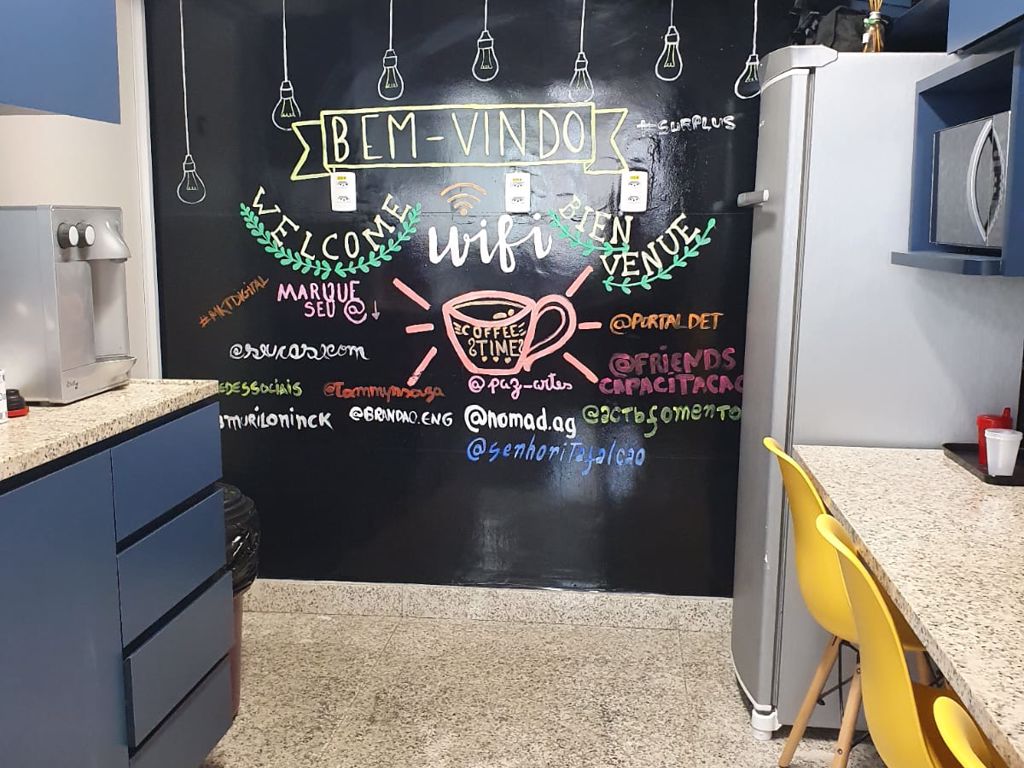 BEM-VINDO
+SURPLUS
WELCOME
wifi
BIEN
VENUE
#MKTDIGITAL
MARQUE
SEU @ ↓
COFFEE
TIME
@PORTALDET
@FRIENDS
CAPACITACAO
EDESSOCIAIS
@paz-artes
MURILONINCK
@BRANDAO.ENG
@nomad.ag
@actbfomento
@senhoritafalcao